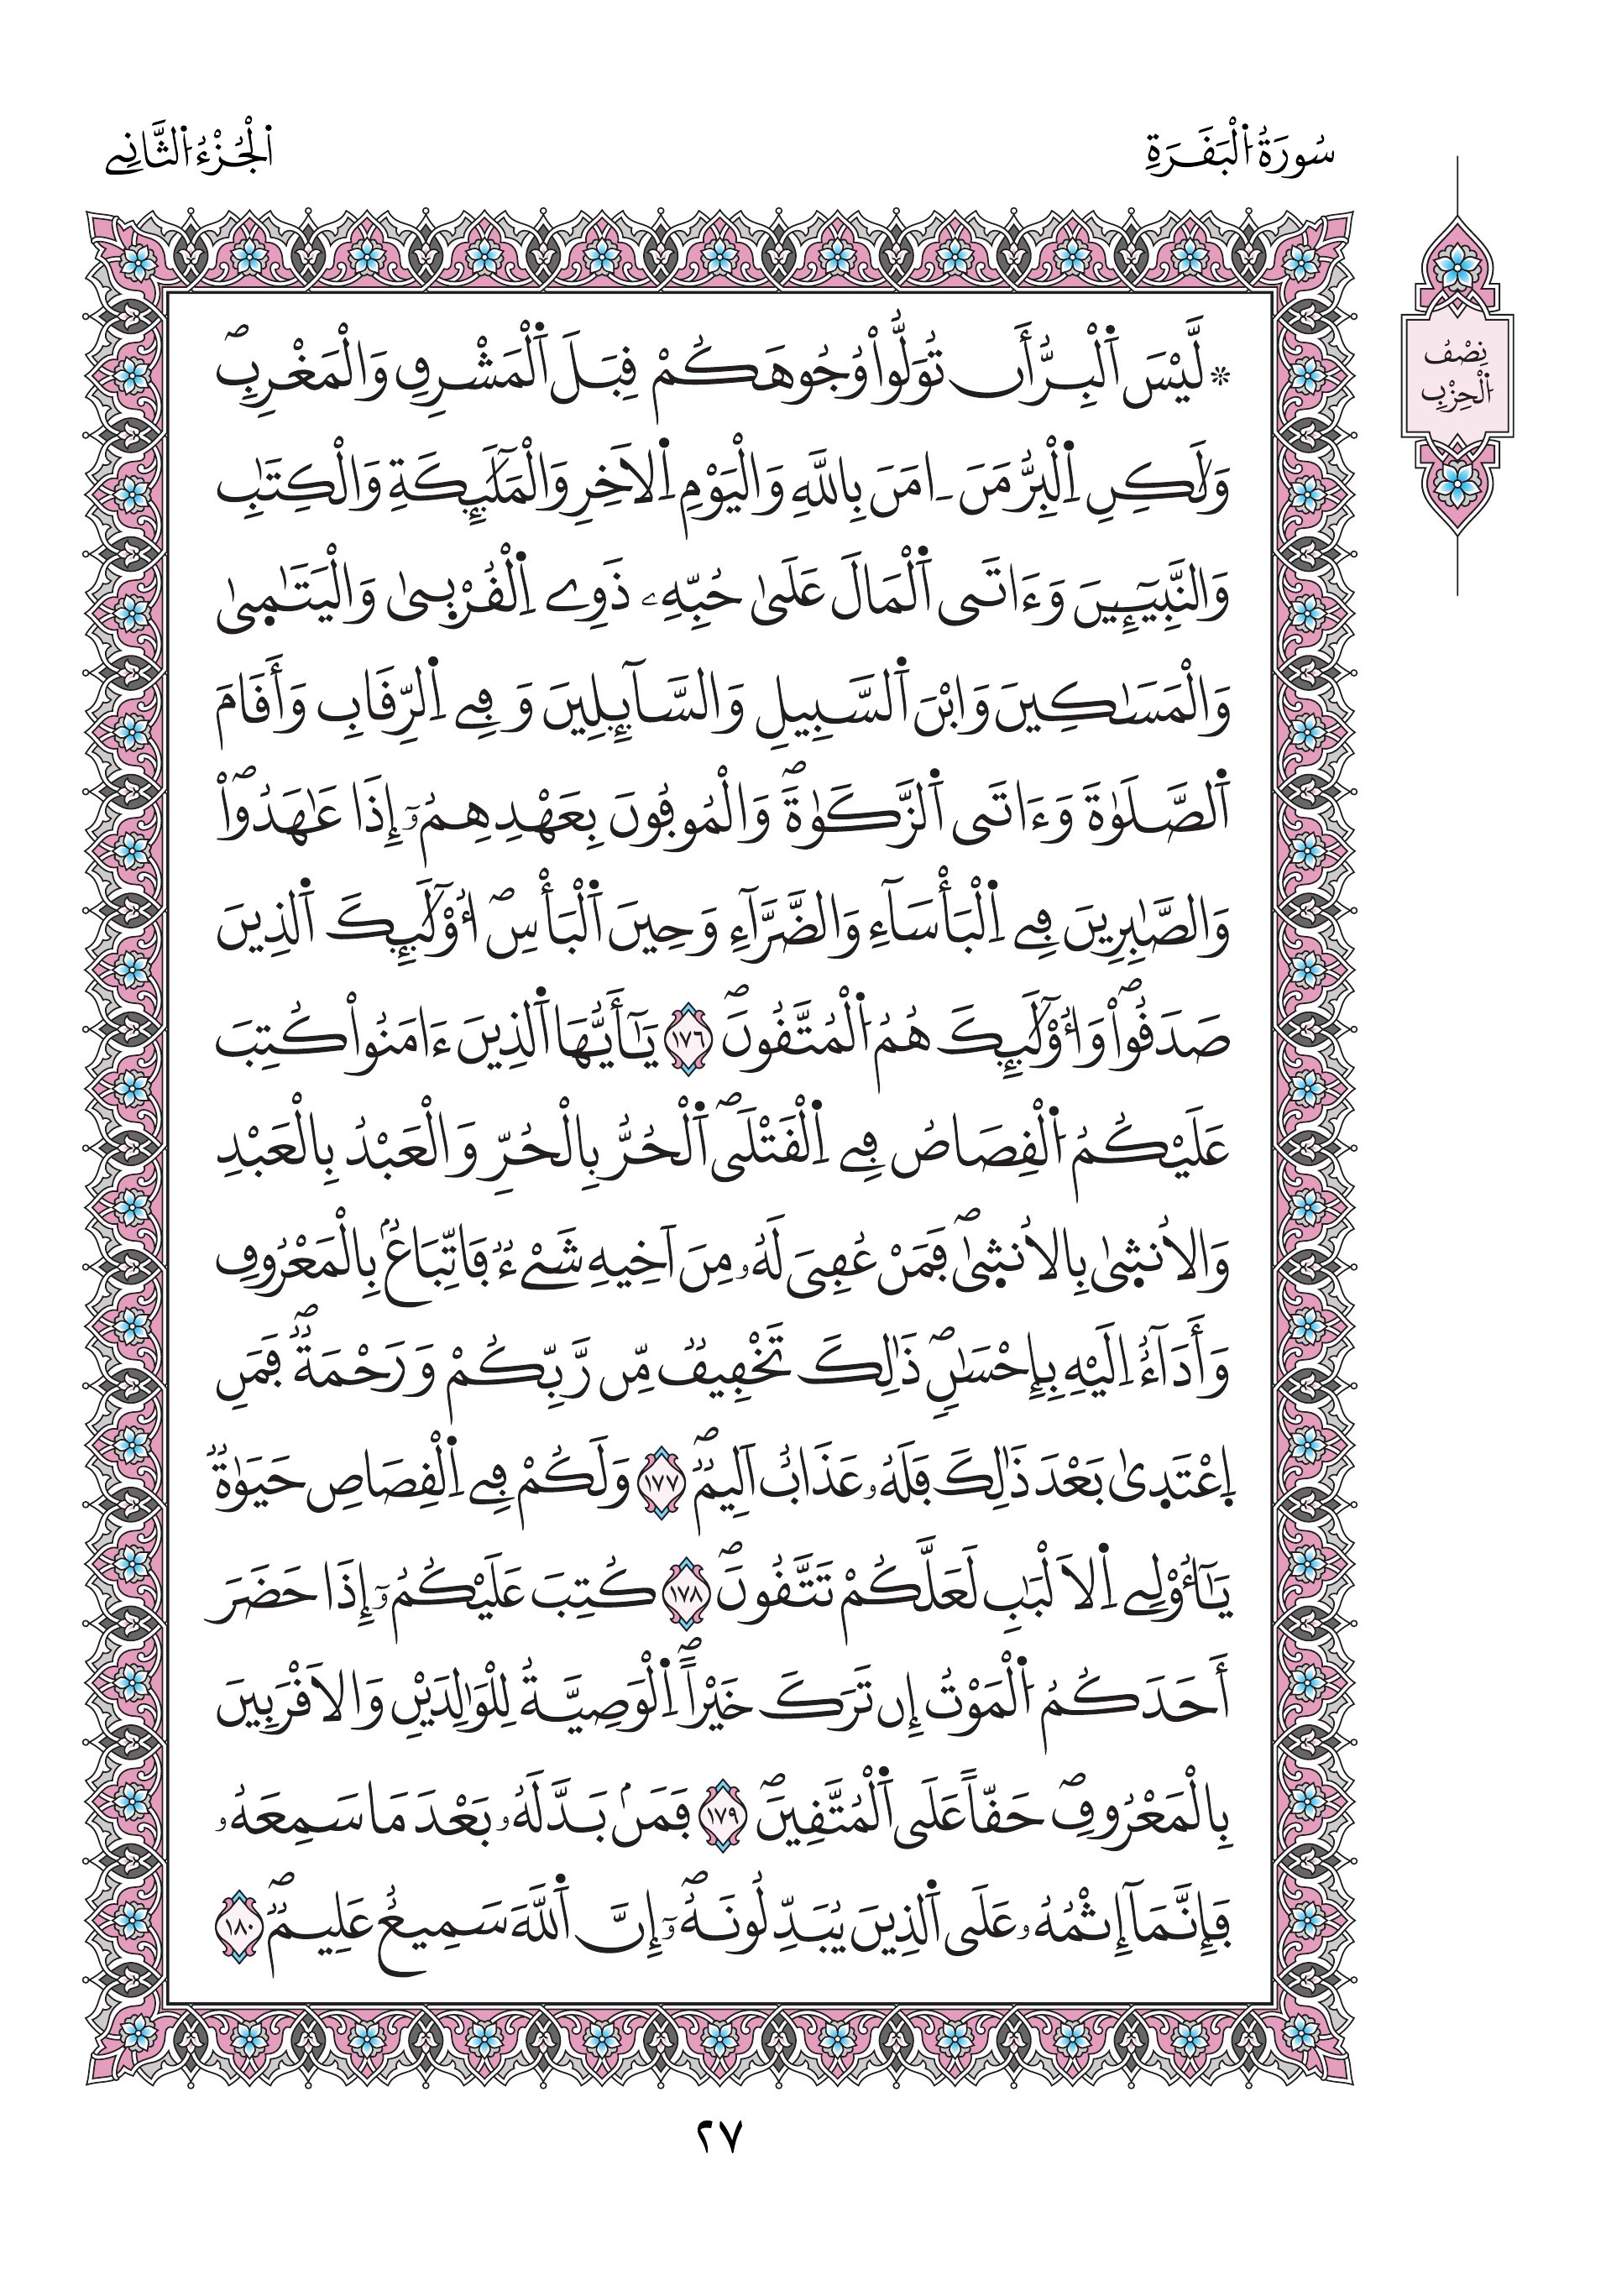 سُورَةُ اُ۬لْبَقَرَةِ
اَ۬لْجُزْءُ اُ۬لثَّانِے
نِصْفُ
اُ۬لْحِزْبِ
۞لَّيْسَ اَ۬لْبِرُّ أَن تُوَلُّواْ وُجُوهَكُمْ قِبَلَ اَ۬لْمَشْرِقِ وَالْمَغْرِبِۖ
وَلَٰكِنِ اِ۬لْبِرُّ مَنَ اٰمَنَ بِاللَّهِ وَالْيَوْمِ اِ۬لَاخِرِ وَالْمَلَٰٓئِكَةِ وَالْكِتَٰبِ
وَالنَّبِيٓـِٕينَ وَءَاتَى اَ۬لْمَالَ عَلَىٰ حُبِّهِۦ ذَوِے اِ۬لْقُرْب۪ىٰ وَالْيَتَٰم۪ىٰ
وَالْمَسَٰكِينَ وَابْنَ اَ۬لسَّبِيلِ وَالسَّآئِلِينَ وَفِے اِ۬لرِّقَابِ وَأَقَامَ
اَ۬لصَّلَوٰةَ وَءَاتَى اَ۬لزَّكَوٰةَۖ وَالْمُوفُونَ بِعَهْدِهِمُۥٓ إِذَا عَٰهَدُواْۖ
وَالصَّٰبِرِينَ فِے اِ۬لْبَأْسَآءِ وَالضَّرَّآءِ وَحِينَ اَ۬لْبَأْسِۖ أُوْلَٰٓئِكَ اَ۬لذِينَ
صَدَقُواْۖ وَأُوْلَٰٓئِكَ هُمُ اُ۬لْمُتَّقُونَۖ ١٧٦ يَٰٓأَيُّهَا اَ۬لذِينَ ءَامَنُواْ كُتِبَ
عَلَيْكُمُ اُ۬لْقِصَاصُ فِے اِ۬لْقَتْلَىۖ اَ۬لْحُرُّ بِالْحُرِّ وَالْعَبْدُ بِالْعَبْدِ
وَالُانث۪ىٰ بِالُانث۪ىٰۖ فَمَنْ عُفِيَ لَهُۥ مِنَ اَخِيهِ شَےْءٞ فَاتِّبَاعُۢ بِالْمَعْرُوفِ
وَأَدَآءٌ اِلَيْهِ بِإِحْسَٰنٖۖ ذَٰلِكَ تَخْفِيفٞ مِّن رَّبِّكُمْ وَرَحْمَةٞۖ فَمَنِ
اِ۪عْتَد۪ىٰ بَعْدَ ذَٰلِكَ فَلَهُۥ عَذَابٌ اَلِيمٞۖ ١٧٧ وَلَكُمْ فِے اِ۬لْقِصَاصِ حَيَوٰةٞ
يَٰٓأُوْلِے اِ۬لَالْبَٰبِ لَعَلَّكُمْ تَتَّقُونَۖ ١٧٨ كُتِبَ عَلَيْكُمُۥٓ إِذَا حَضَرَ
أَحَدَكُمُ اُ۬لْمَوْتُ إِن تَرَكَ خَيْراًۖ اِ۬لْوَصِيَّةُ لِلْوَٰلِدَيْنِ وَالَاقْرَبِينَ
بِالْمَعْرُوفِۖ حَقّاً عَلَى اَ۬لْمُتَّقِينَۖ ١٧٩ فَمَنۢ بَدَّلَهُۥ بَعْدَ مَا سَمِعَهُۥ
فَإِنَّمَآ إِثْمُهُۥ عَلَى اَ۬لذِينَ يُبَدِّلُونَهُۥٓۖ إِنَّ اَ۬للَّهَ سَمِيعٌ عَلِيمٞۖ ١٨٠
٢٧